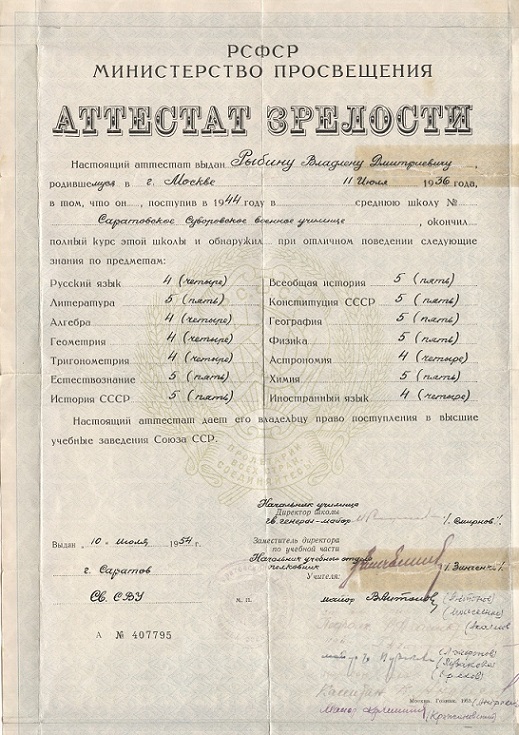 РСФСР
МИНИСТЕРСТВО ПРОСВЕЩЕНИЯ
АТТЕСТАТ ЗРЕЛОСТИ
Настоящий аттестат выдан Рыбину Владлену Дмитриевичу,
родившемуся в г. Москве 11 Июля 1936 года,
в том, что он, поступив в 1944 году в среднюю школу №
Саратовское Суворовское военное училище, окончил
полный курс этой школы и обнаружил при отличном поведении следующие
знания по предметам:
Русский язык 4 (четыре)
Литература 5 (пять)
Алгебра 4 (четыре)
Геометрия 4 (четыре)
Тригонометрия 4 (четыре)
Естествознание 5 (пять)
История СССР 5 (пять)
Всеобщая история 5 (пять)
Конституция СССР 5 (пять)
География 5 (пять)
Физика 5 (пять)
Астрономия 4 (четыре)
Химия 5 (пять)
Иностранный язык 4 (четыре)
Настоящий аттестат дает его владельцу право поступления в высшие
учебные заведения Союза ССР.
ПРОЛЕТАРИИ
ВСЕХ СТРАН
СОЕДИНЯЙТЕСЬ
Начальник училища
Директор школы
гв. генерал-майор /Смирнов/
Выдан 10 июля 1954 г.
г. Саратов
Св. СВУ
М. П.
А № 407795
Заместитель директора
по учебной части
Начальник учебного отдела
полковник /Зинченко/
Учителя:
майор
майор
Москва. Гознак.
майор